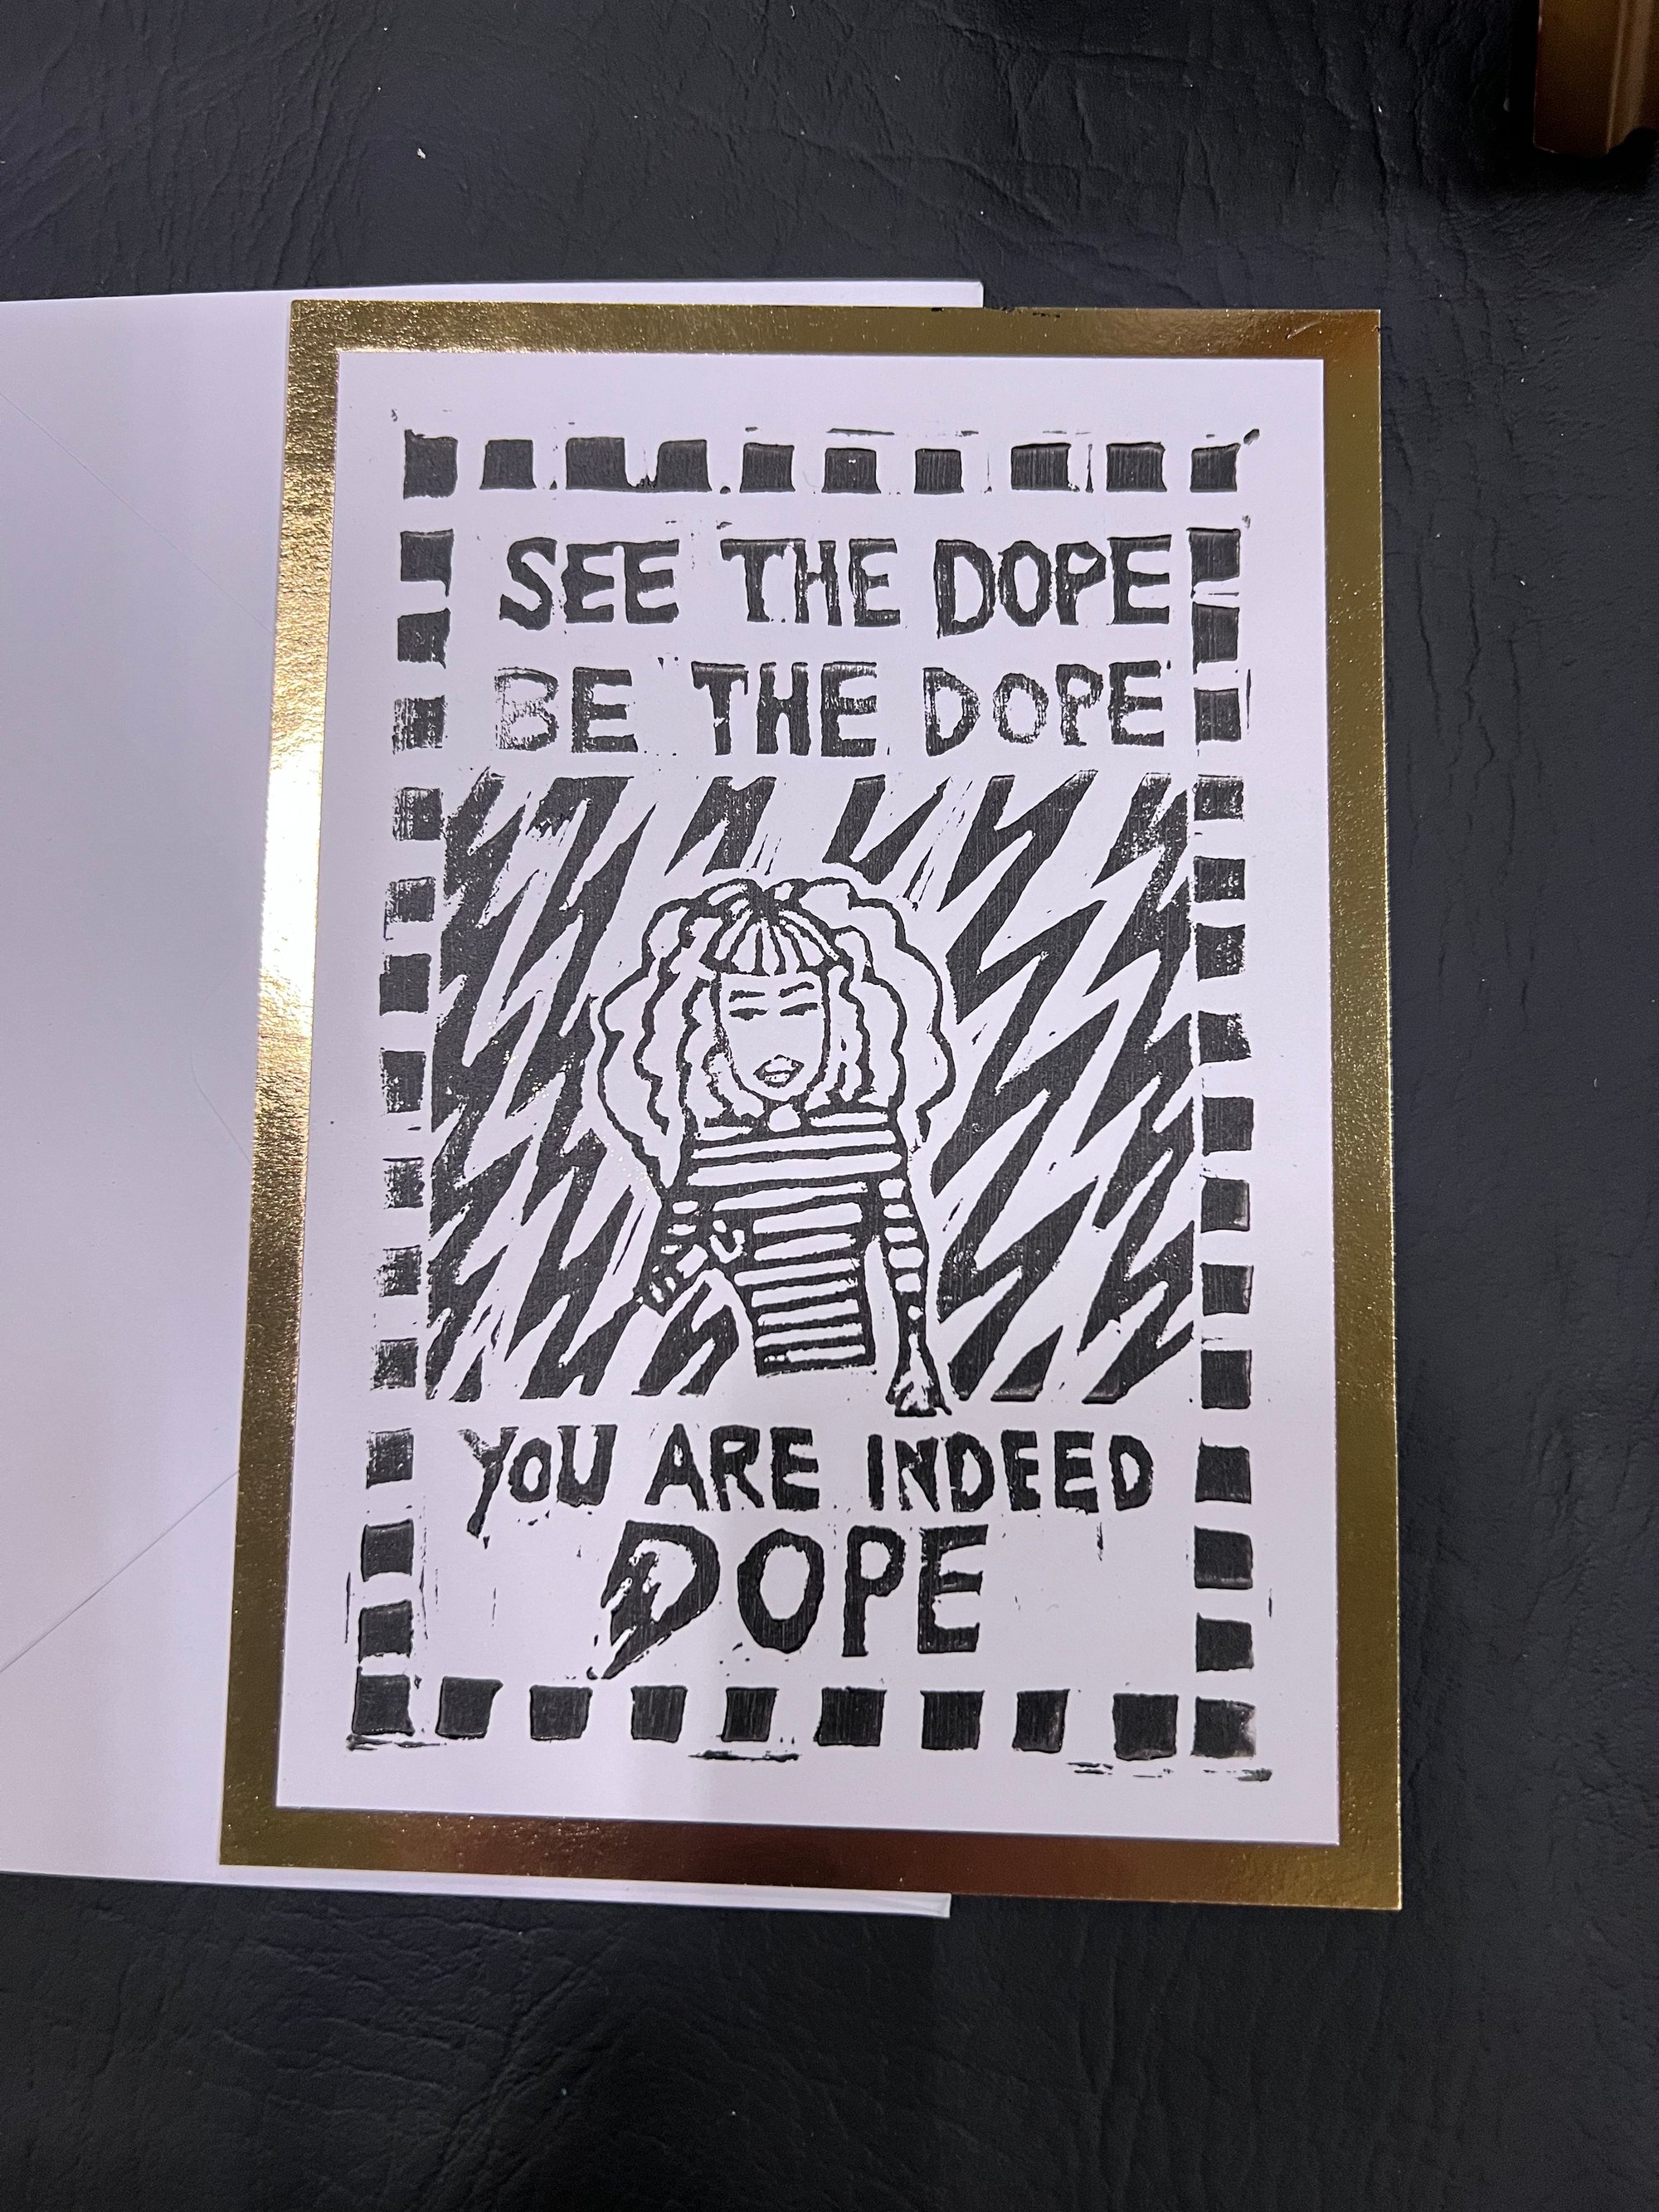 SEE THE DOPE
BE THE DOPE
YOU ARE INDEED
DOPE